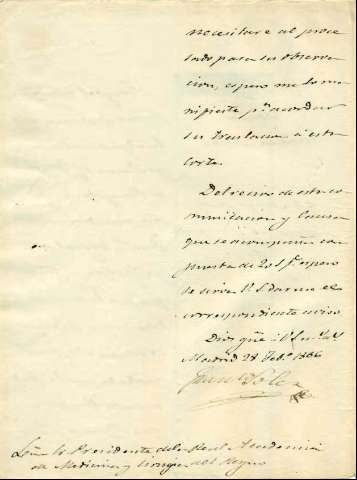 necesitare al proce
sado para su observa
cion, espero me lo ma
nifieste pª. acordar
su traslacion á esta
Corte.
Del recivo de esta co
municacion y Causa
que se acompaña com
puesta de 201 fs. espero
se sirva V.S. darme el
correspondiente aviso
Dios gue á V.S. ms. as.
Madrid 28 Febº. 1866
Sr. Presidente de la Real Academia
de Medicina y Cirugia del Reyno